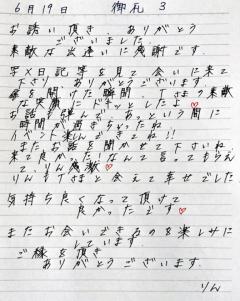 6月19日 御礼 3
お話い頂き、ありがとう
ございました
素敵な出逢いに感謝です
写メ日記等を見て会いに来て
くださり、ありがとうございます
扉を開いた瞬間、Tさまの素敵
な笑顔にドキッとしたよ♡
お話も弾んであっという間に
時間が過ぎちゃったね
イベント楽しんできてね!!
またお話を聞かせて下さいね
来て良かった!なんて言ってもらえ
て りん感激♡
りんもTさまと会えて幸せでした
気持ち良くなって頂けて
良かったです♡
またお会いできるのを楽しみに
しています
ご縁を頂き
ありがとうございます
りん